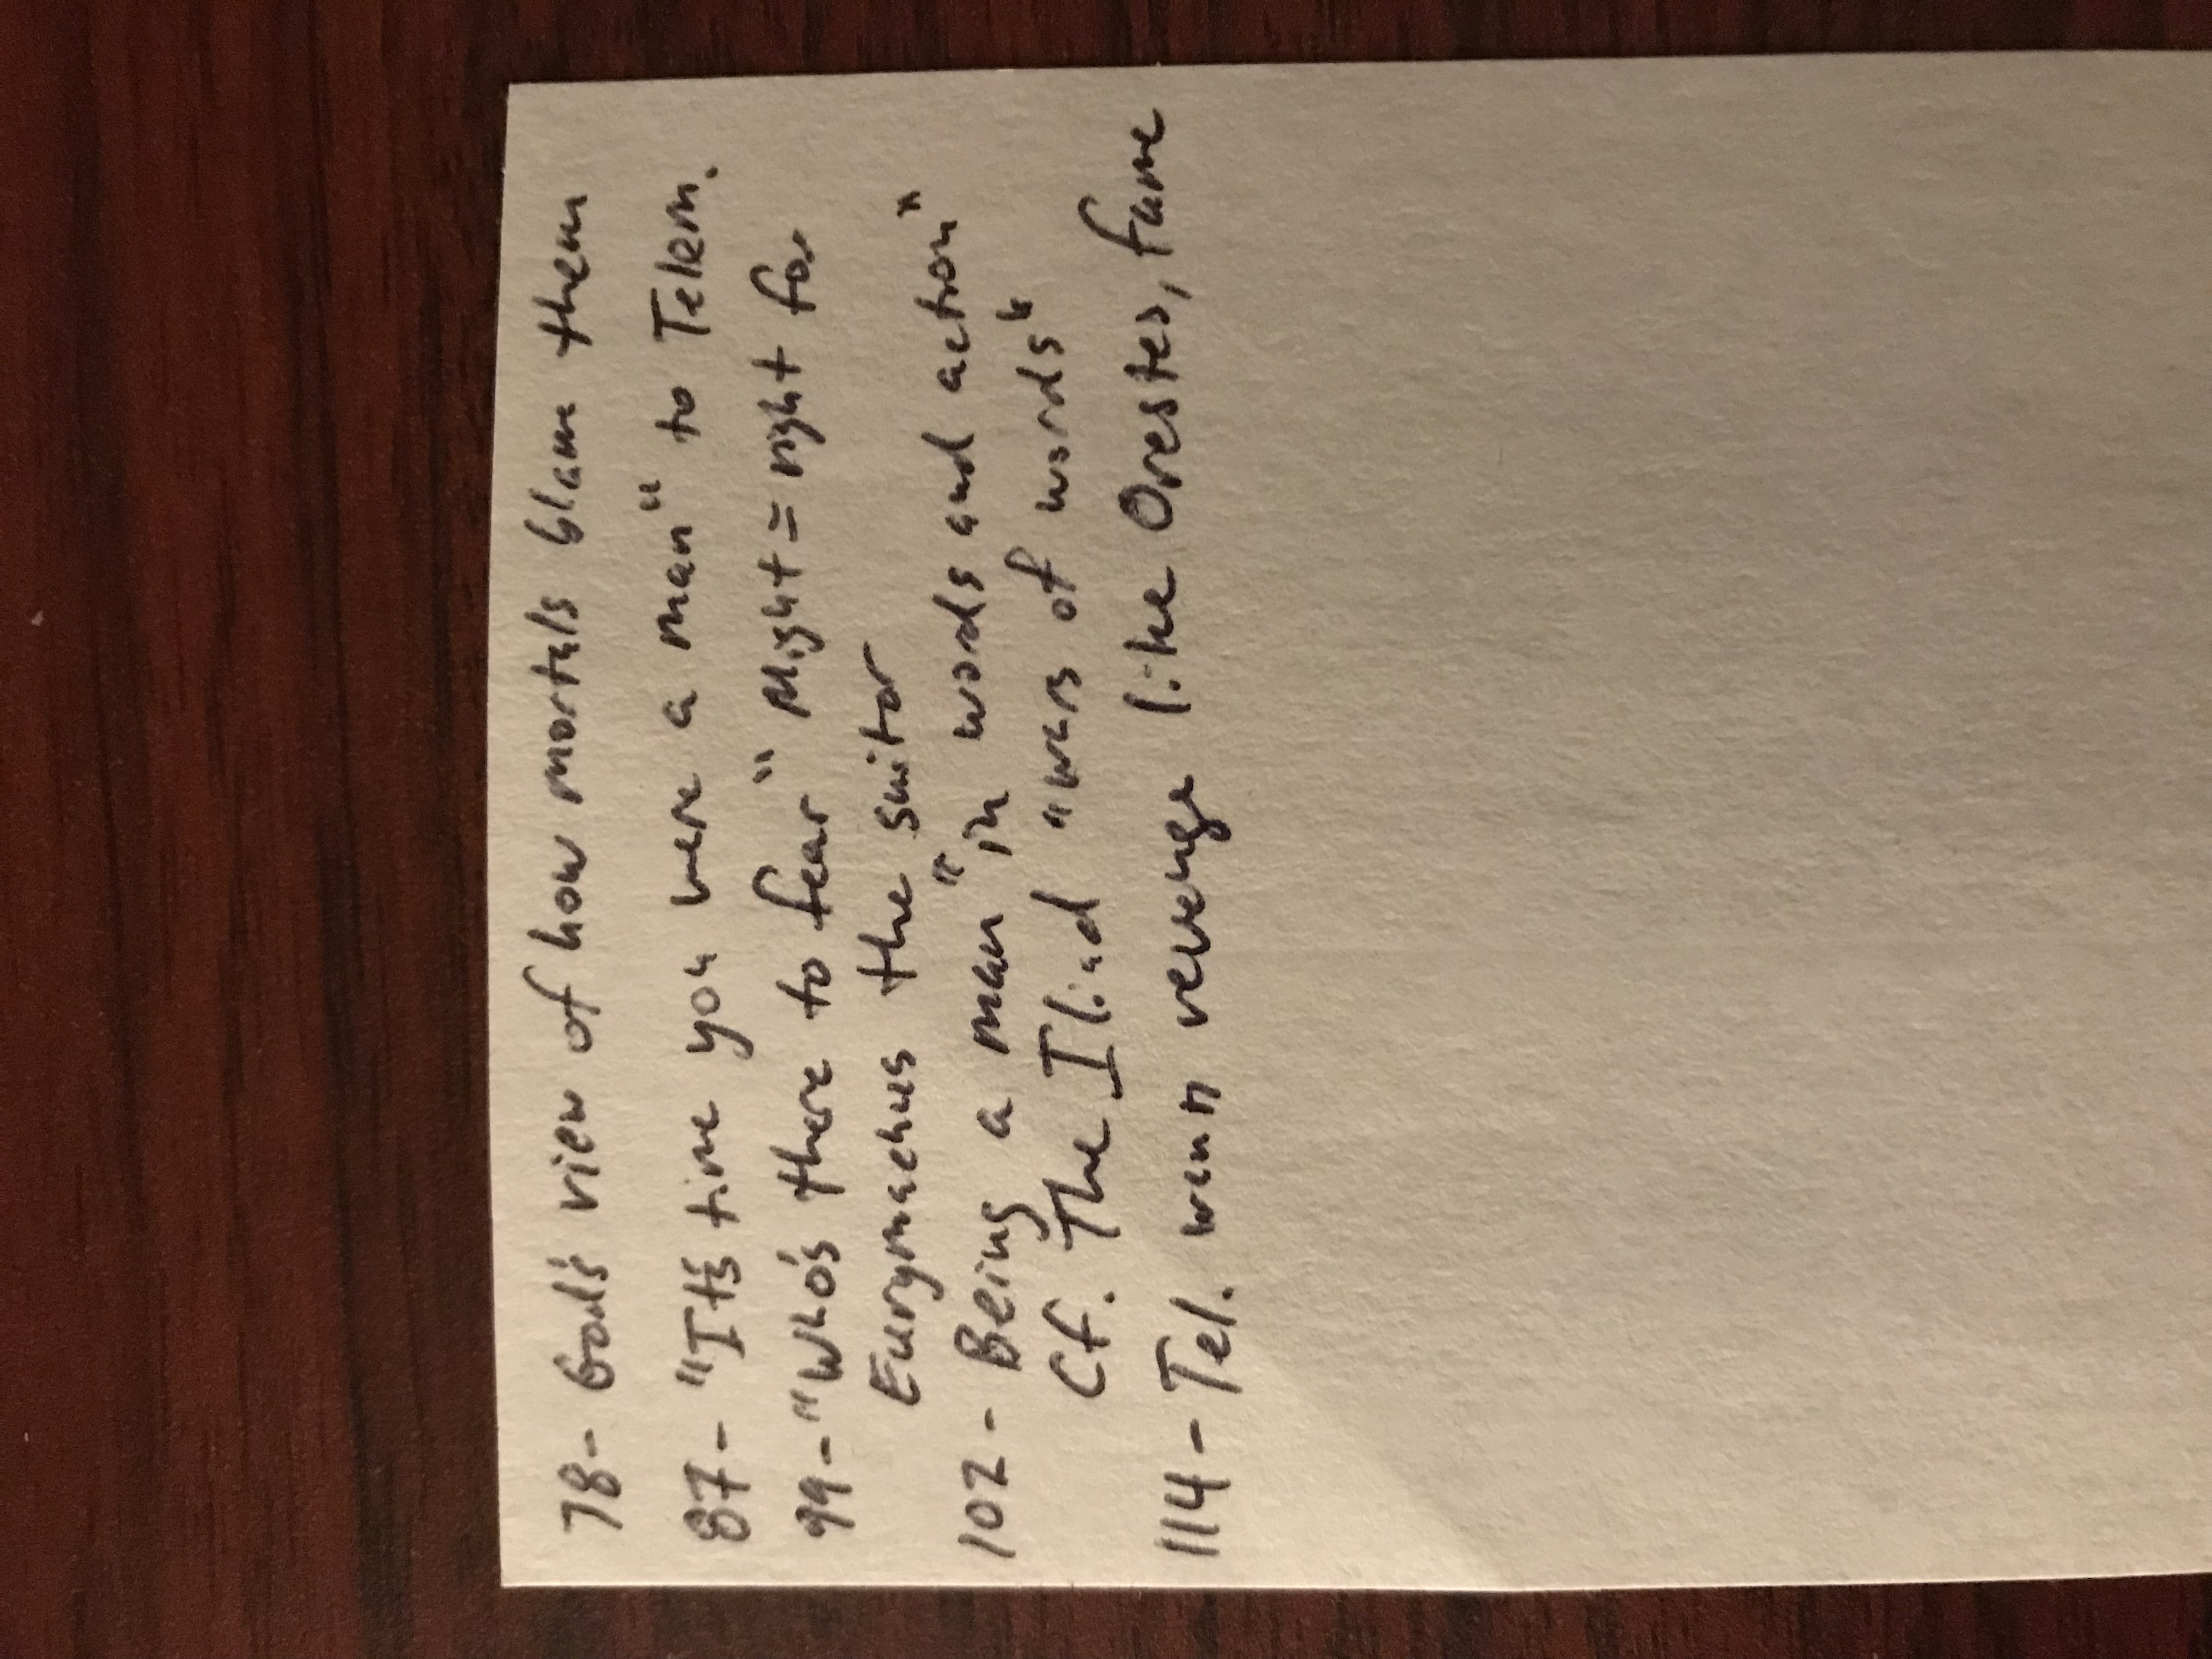 78- God's view of how mortals blame them
87- "It's time you were a man" to Telem.
99- "Who's there to fear" Might = right for
Eurymachus the suitor
102- Being a man "in words and action"
Cf. The Iliad "wars of words"
114- Tel. wan revenge like Orestes, fame